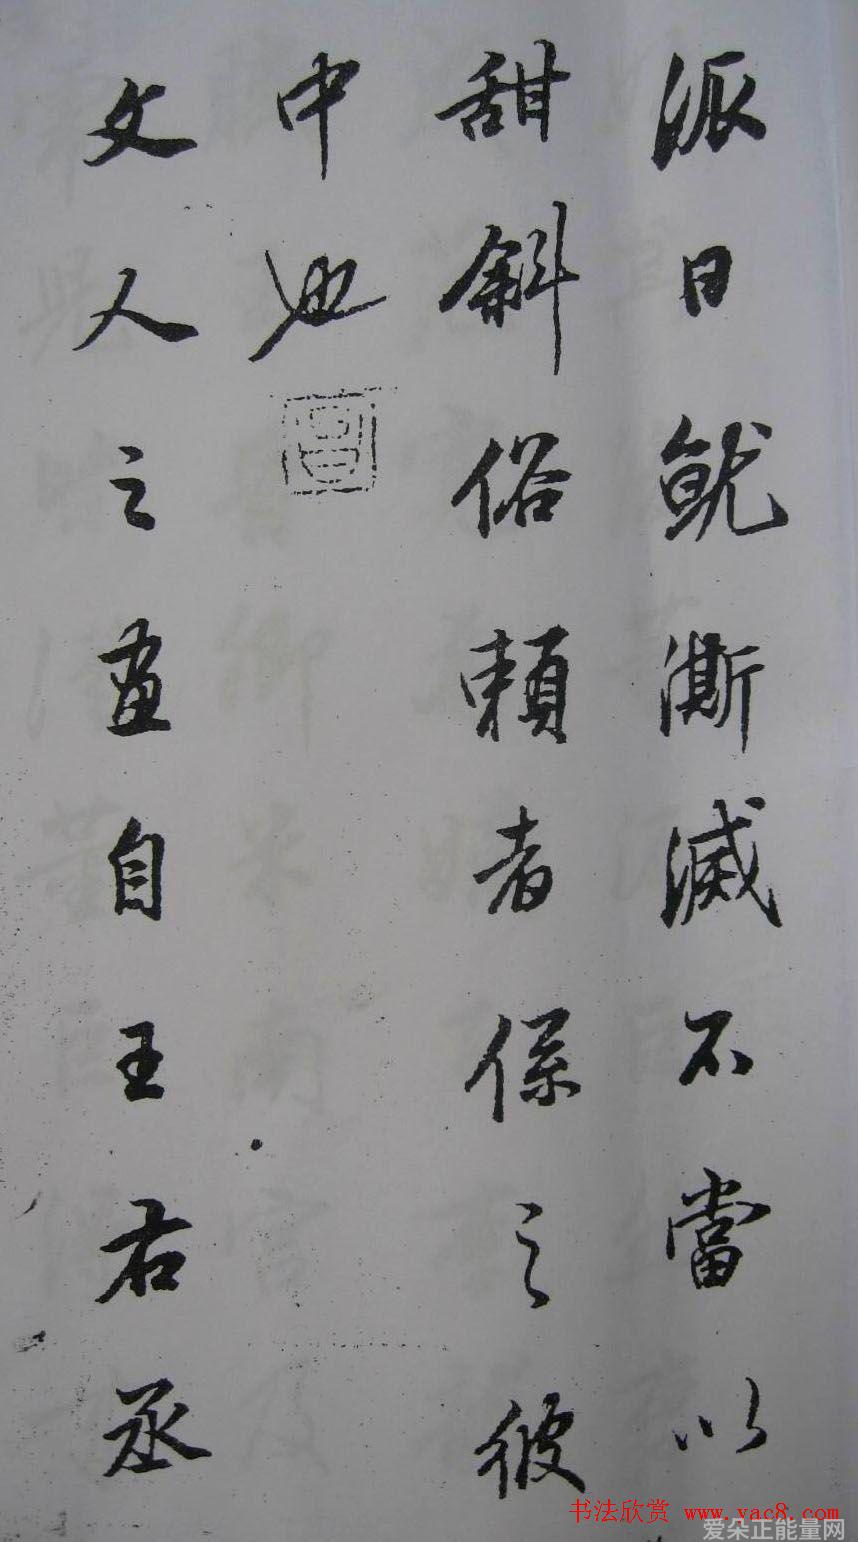 派日就澌滅不當以
甜斜俗頼者係之彼
中也
文人之畫自王右丞
书法欣赏 www.yac8.com
爱朵正能量网